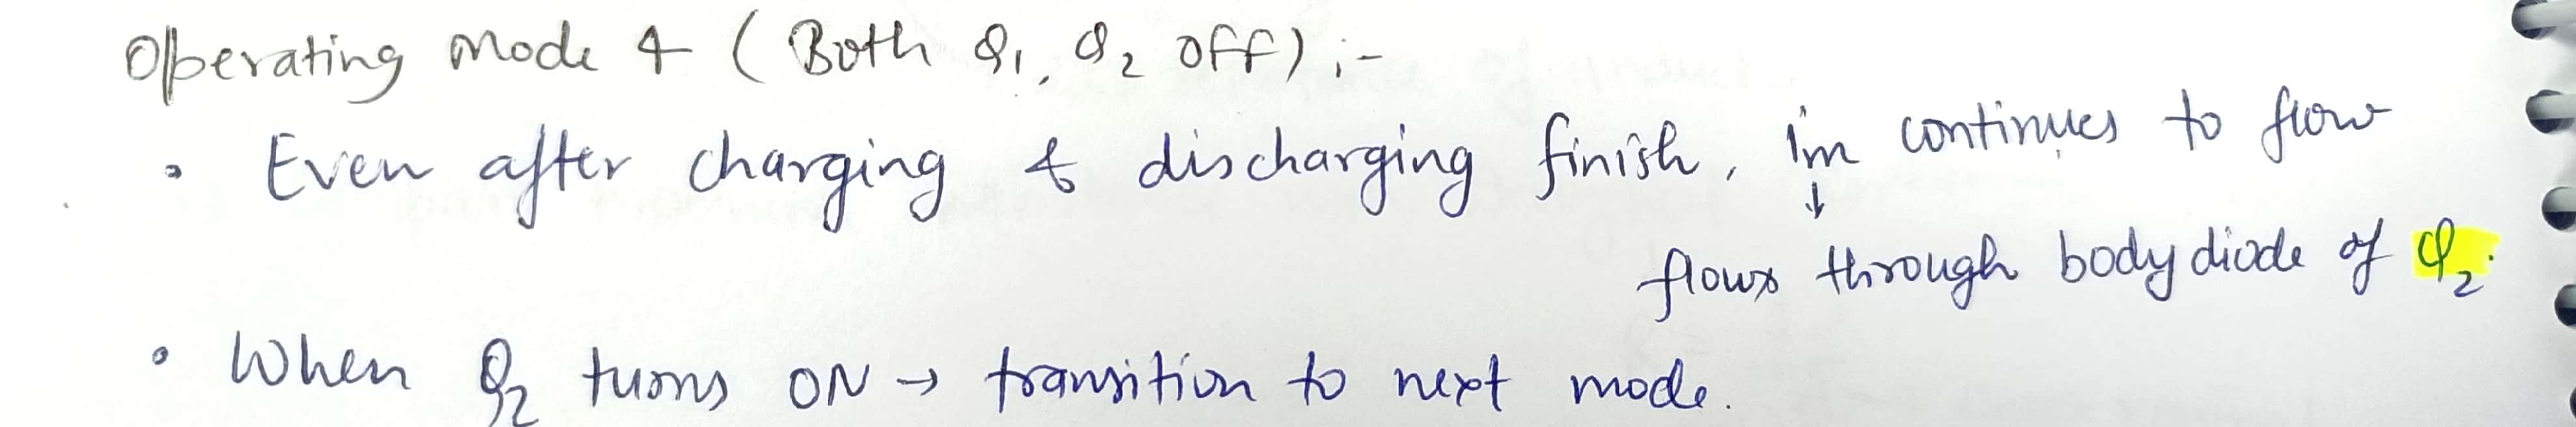 Operating Mode 4 (Both Q1, Q2 OFF) :-
• Even after charging & discharging finish, im continues to flow
↓
flows through body diode of Q2.
• When Q2 turns ON → transition to next mode.